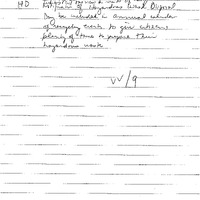 HD
of Hazardous Waste Disposal
Day be included in annual calendar
of everyday events to give citizens
plenty of time to prepare their
hazardous waste.
VV/9